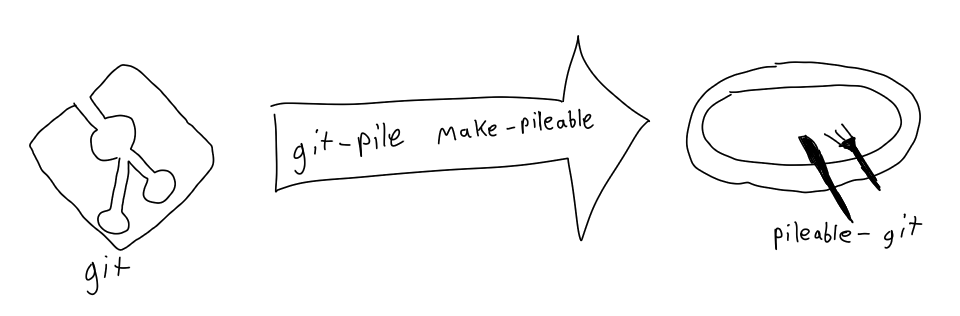 git
git-pile make-pileable
pileable-git